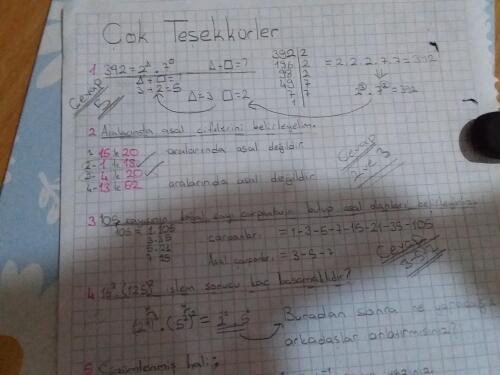 Çok Teşekkürler
1 392=2^Δ.7^□ Δ+□=?
Δ+□=?
3+2=5
Cevap 5
Δ=3 □=2
392 2
196 2
98 2
49 7
7 7
1
=2.2.2.7.7=392
2³.7²=392
2 Aralarında asal çiftlerini belirleyelim.
1-15 ile 20 aralarında asal değildir
2-1 ile 18
3-4 ile 20
4-13 ile 52 aralarında asal değildir
Cevap 2 ve 3
3 105 sayısının doğal sayı çarpanlarını bulup asal olanları belirleyiniz
105= 1.105
3.35
5.21
7.15
çarpanları =1-3-5-7-15-21-35-105
Asal çarpanları =3-5-7
Cevap 3-5-7
işlem sonucu kaç basamaklıdır?
Buradan sonra ne yapacağız
arkadaşlar anlatırmısınız?
5 hali;